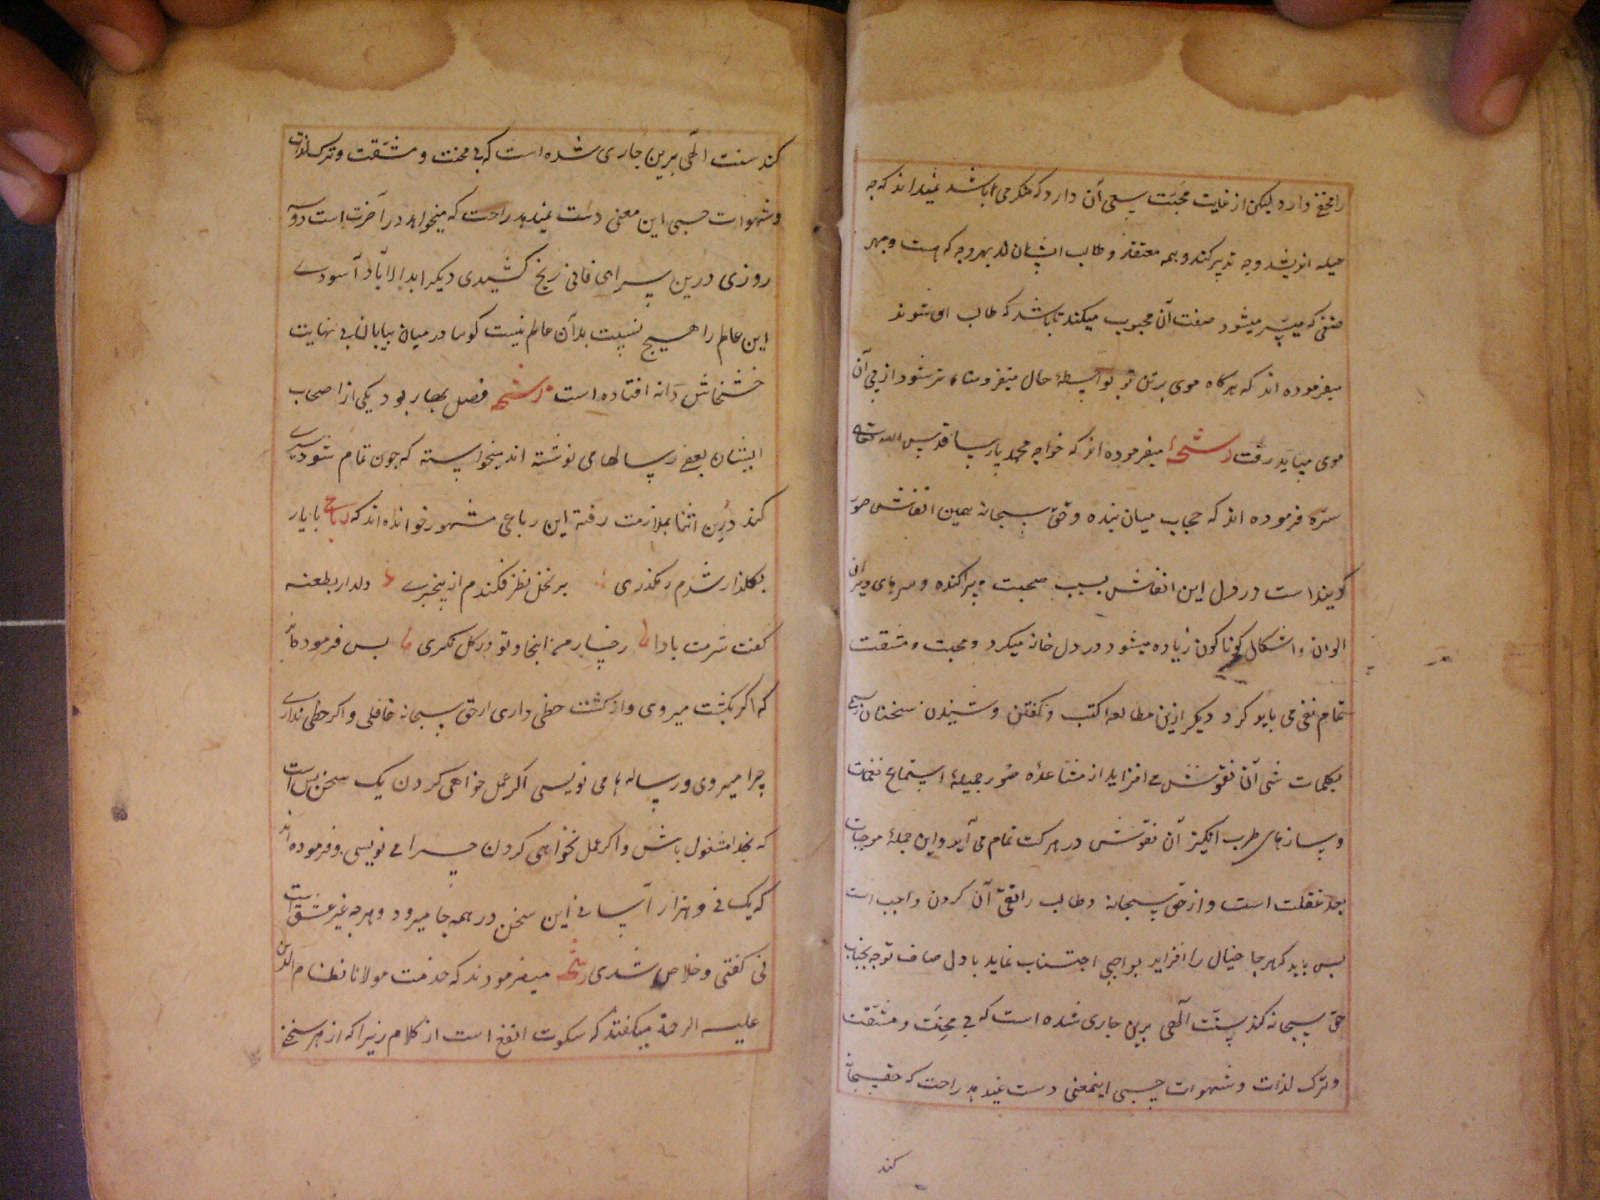 را مخفی دارد لیکن از غایت محبت سعی آن دارد که منکر می باشد نمیداند که چه
حیله اندیشد و چه تدبیر کند و همه معتقد و طالب ایشان اند بهر وجه که هست و بهر
صفتی که میسر میشود صفت آن محبوب میکند تا باشد که طالب او شوند
میفرموده اند که هرگاه موی بر تن تو بواسطهٔ حال متفرد شود از پی آن
موی میباید رفت رشحه میفرموده اند که خواجه محمد پارسا قدس الله تعالی
سره فرموده اند که حجاب میان بنده و حق سبحانه همین انتقاش صور
کونیه است در دل این انتقاش بسبب صحبت پراکنده و سرهای ویران
الوان و اشکال گوناگون زیاده میشود در دل خانه میگیرد و محبت و مشقت
تمام نفی می باید کرد دیگر ازین مطالعه کتب و گفتن و شنیدن سخنان رسمی
بکلمات شی آن نقوش می افزاید از مشاهده صور جمیله و استماع نغمات
و سازهای طرب انگیز آن نقوش در حرکت تمام می آید و این جمله موجبات
بعد غفلت است و از حق سبحانه و طالب را نفی آن کردن واجب است
پس باید که هر جا خیال را افزاید بواجبی اجتناب نماید با دل صاف توجه بجناب
حق سبحانه کند سنت الهی برین جاری شده است که بی محنت و مشقت
و ترک لذات و شهوات حسی اینمعنی دست ندهد راحت که حق سبحانه
کند
کند سنت الهی برین جاری شده است که بی محنت و مشقت و ترک لذات
و شهوات حسی این معنی دست ندهد راحت که میخواهد در آخرت است دو سه
روزی درین سرای فانی رنج کشیدی دیگر ابدالاباد آسودی
این عالم را هیچ نسبت بدان عالم نیست گویا در میان بیابان بی نهایت
خشخاش دانه افتاده است رشحه فصل بهار بود یکی از اصحاب
ایشان بعضی رسالها می نوشته اند میخواسته که چون تمام شود سیری
کند درین اثنا بملازمت رفته این رباعی مشهور خوانده اند که رباعی با یار
بگلزار شدم رهگذری بر گل نظر فکندم از بیخبری دلدار بطعنه
گفت شرمت بادا رخسار من اینجا و تو در گل نگری پس فرموده اند
که اگر بگشت میروی و از گشت حظی داری از حق سبحانه غافلی و اگر حظی نداری
چرا میروی و رساله ها می نویسی اگر عمل خواهی کردن یک سخن بس است
که بخدا مشغول باش و اگر عمل نخواهی کردن چرا می نویسی و فرموده اند
که یک نی و هزار آسانی این سخن در همه جا میرود و هر چه غیر عشق است
نی گفتی و خلاص شدی رشحه میفرمودند که خدمت مولانا نظام الدین
علیه الرحمة میگفتند که سکوت انفع است از کلام زیرا که از هر سخنی